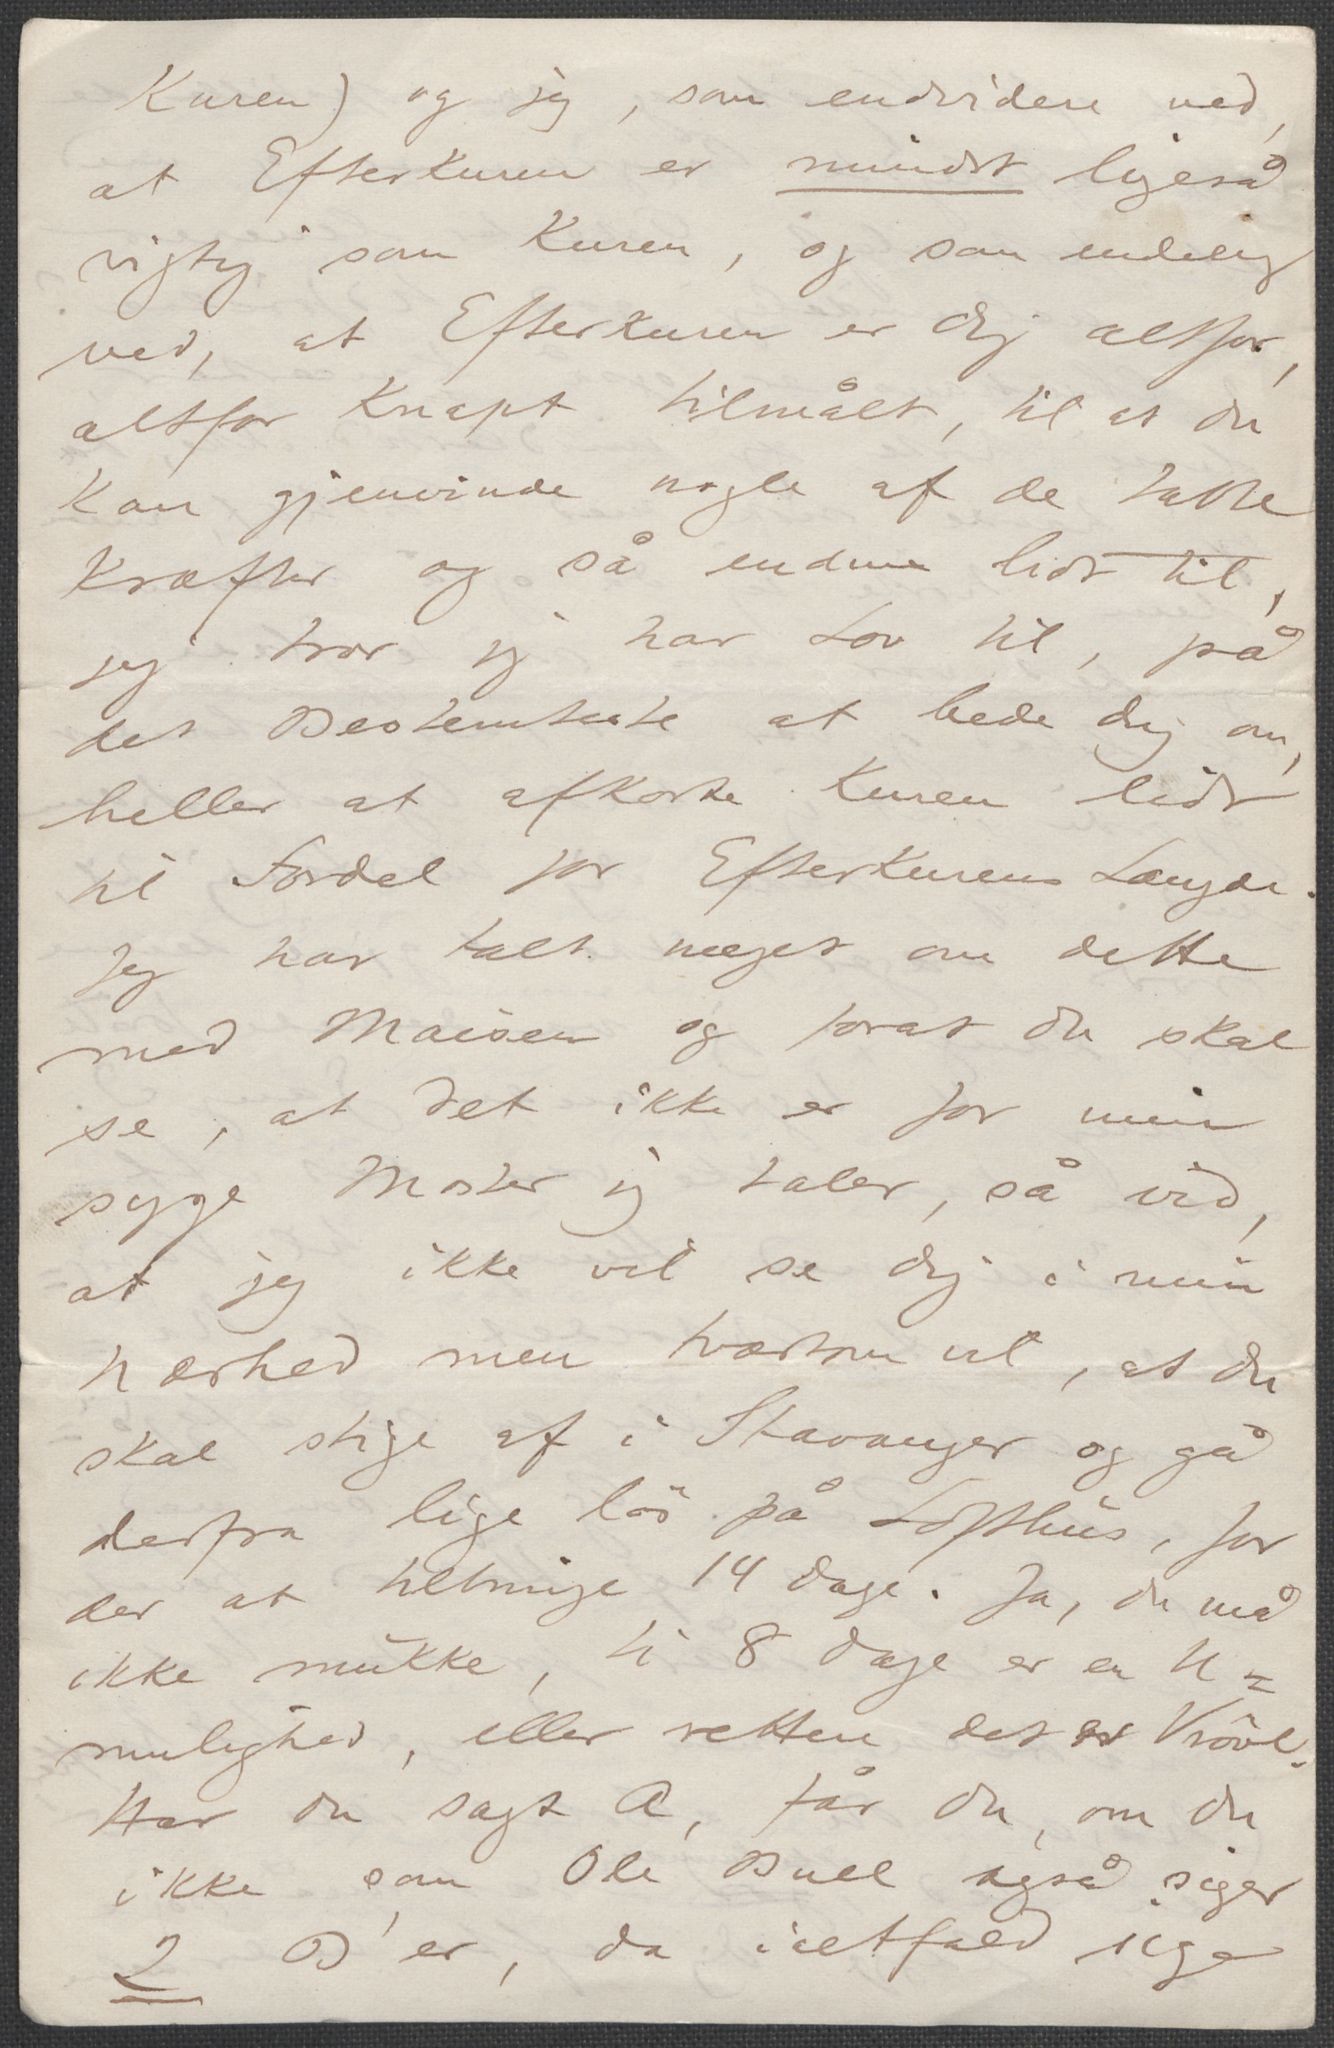 Kuren) og jeg, som endvidere ved,
at Efterkuren er mindst ligeså
vigtig som Kuren, og som endelig
ved, at Efterkuren er dig altfor,
altfor knapt tilmålt, til at du
kan gjenvinde nogle af de tabte
Kræfter og så endnu lidt til,
jeg tror jeg har Lov til, på
det Bestemteste at bede dig om,
heller at afkorte Kuren lidt
til Fordel for Efterkurens Længde.
Jeg har talt meget om dette
med Maisen og forat du skal
se, at det ikke er for min
syge Moster jeg taler, så vid,
at jeg ikke vil se dig i min
Nærhed men tværtom vil, at du
skal stige af i Stavanger og gå
derfra lige løs på Lofthus, for
der at tilbringe 14 dage. Ja, du må
ikke mukke, ti 8 dage er en U=
mulighed, eller rettere det er Vrøvl.
Har du sagt A, får du, om du
ikke som Ole Bull også siger
2 B'er, da ialtfald sige